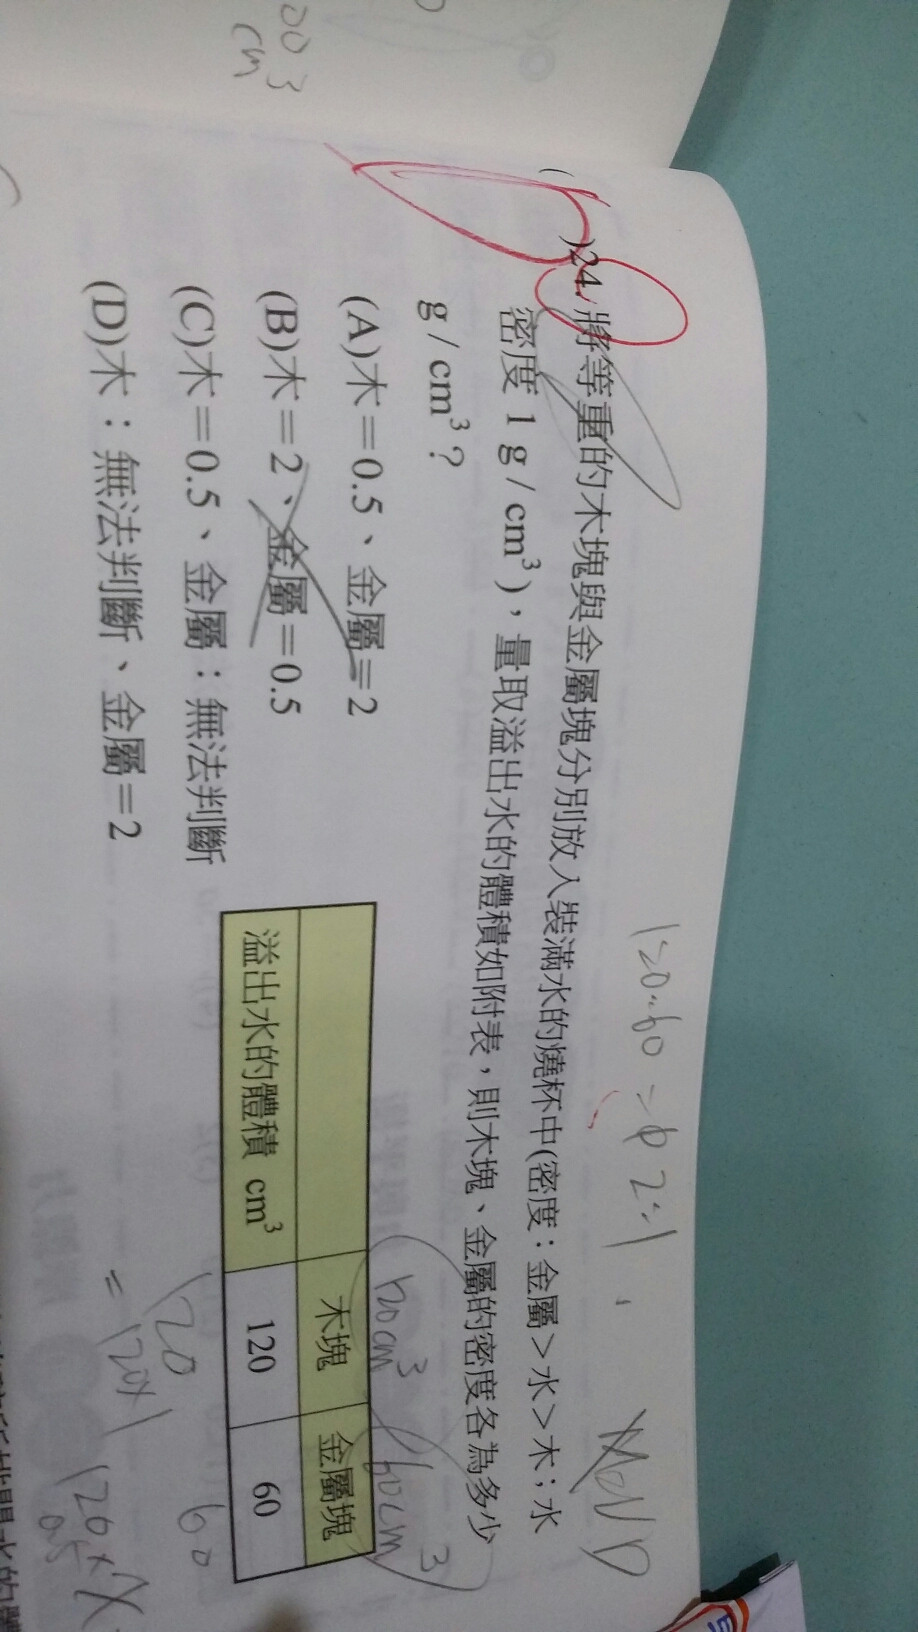 00
cm 3
120:60=
2:1
( )24. 將等重的木塊與金屬塊分別放入裝滿水的燒杯中(密度：金屬＞水＞木；水
密度 1 g / cm³)，量取溢出水的體積如附表，則木塊、金屬的密度各為多少
g / cm³？
(A)木＝0.5、金屬＝2
(B)木＝2、金屬＝0.5
(C)木＝0.5、金屬：無法判斷
(D)木：無法判斷、金屬＝2
120cm³ 60cm³
木塊 金屬塊
溢出水的體積 cm³ 120 60
120 60
= 120×1